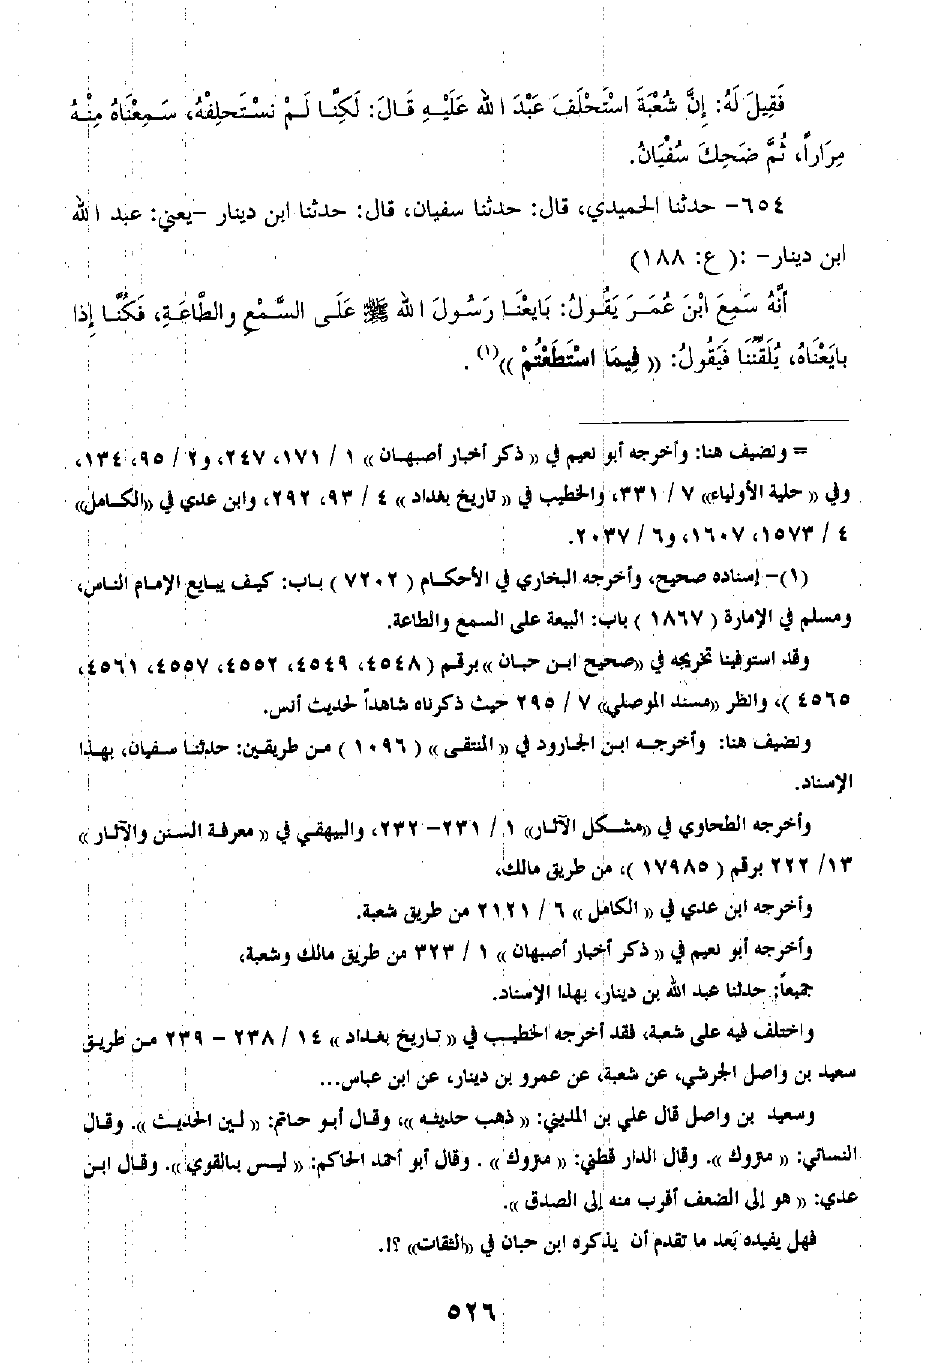 فَقِيلَ لَهُ: إِنَّ شُعْبَةَ اسْتَحْلَفَ عَبْدَ الله عَلَيْهِ قَالَ: لَكِنَّا لَمْ نَسْتَحلِفْهُ، سَمِعْنَاهُ مِنْهُ
مِرَاراً، ثُمَّ ضَحِكَ سُفْيَانُ.
٦٥٤- حدثنا الحميدي، قال: حدثنا سفيان، قال: حدثنا ابن دينار -يعني: عبد الله
ابن دينار- :( ع: ١٨٨)
أَنَّهُ سَمِعَ ابْنَ عُمَرَ يَقُولُ: بَايَعْنَا رَسُولَ الله ﷺ عَلَى السَّمْعِ والطَّاعَةِ، فَكُنَّا إِذا
بايَعْنَاهُ، يُلَقِّنُنَا فَيَقُولُ: « فِيمَا اسْتَطَعْتُمْ »(١) .
= ونضيف هنا: وأخرجه أبو نعيم في « ذكر أخبار أصبهان » ١ / ١٧١، ٢٤٧، و٢ / ٩٥، ١٣٤،
وفي « حلية الأولياء» ٧ / ٣٣١، والخطيب في « تاريخ بغداد » ٤ / ٩٣، ٢٩٢، وابن عدي في «الكامل»
٤ / ١٥٧٣، ١٦٠٧، و٦ / ٢٠٣٧.
(١)- إسناده صحيح، وأخرجه البخاري في الأحكام ( ٧٢٠٢ ) باب: كيف يبايع الإمام الناس،
ومسلم في الإمارة ( ١٨٦٧ ) باب: البيعة على السمع والطاعة.
وقد استوفينا تخريجه في «صحيح ابن حبان »برقم ( ٤٥٤٨، ٤٥٤٩، ٤٥٥٢، ٤٥٥٧، ٤٥٦١،
٤٥٦٥ )، وانظر «مسند الموصلي» ٧ / ٢٩٥ حيث ذكرناه شاهداً لحديث أنس.
ونضيف هنا: وأخرجه ابن الجارود في « المنتقى » ( ١٠٩٦ ) من طريقين: حدثنا سفيان، بهذا
الإسناد.
وأخرجه الطحاوي في «مشكل الآثار» ١ / ٢٣١- ٢٣٢، والبيهقي في « معرفة السنن والآثار »
١٣/ ٢٢٢ برقم ( ١٧٩٨٥ )، من طريق مالك،
وأخرجه ابن عدي في « الكامل » ٦ / ٢١٢١ من طريق شعبة.
وأخرجه أبو نعيم في « ذكر أخبار أصبهان » ١ / ٣٢٣ من طريق مالك وشعبة،
جميعاً: حدثنا عبد الله بن دينار، بهذا الإسناد.
واختلف فيه على شعبة، فقد أخرجه الخطيب في « تاريخ بغداد » ١٤ / ٢٣٨ - ٢٣٩ من طريق
سعيد بن واصل الجرشي، عن شعبة، عن عمرو بن دينار، عن ابن عباس...
وسعيد بن واصل قال علي بن المديني: « ذهب حديثه »، وقال أبو حاتم: « لين الحديث ». وقال
النسائي: « متروك ». وقال الدار قطني: « متروك » . وقال أبو أحمد الحاكم: « ليس بالقوي». وقال ابن
عدي: « هو إلى الضعف أقرب منه إلى الصدق ».
فهل يفيده بَعد ما تقدم أن يذكره ابن حبان في «الثقات» ؟!.
٥٢٦